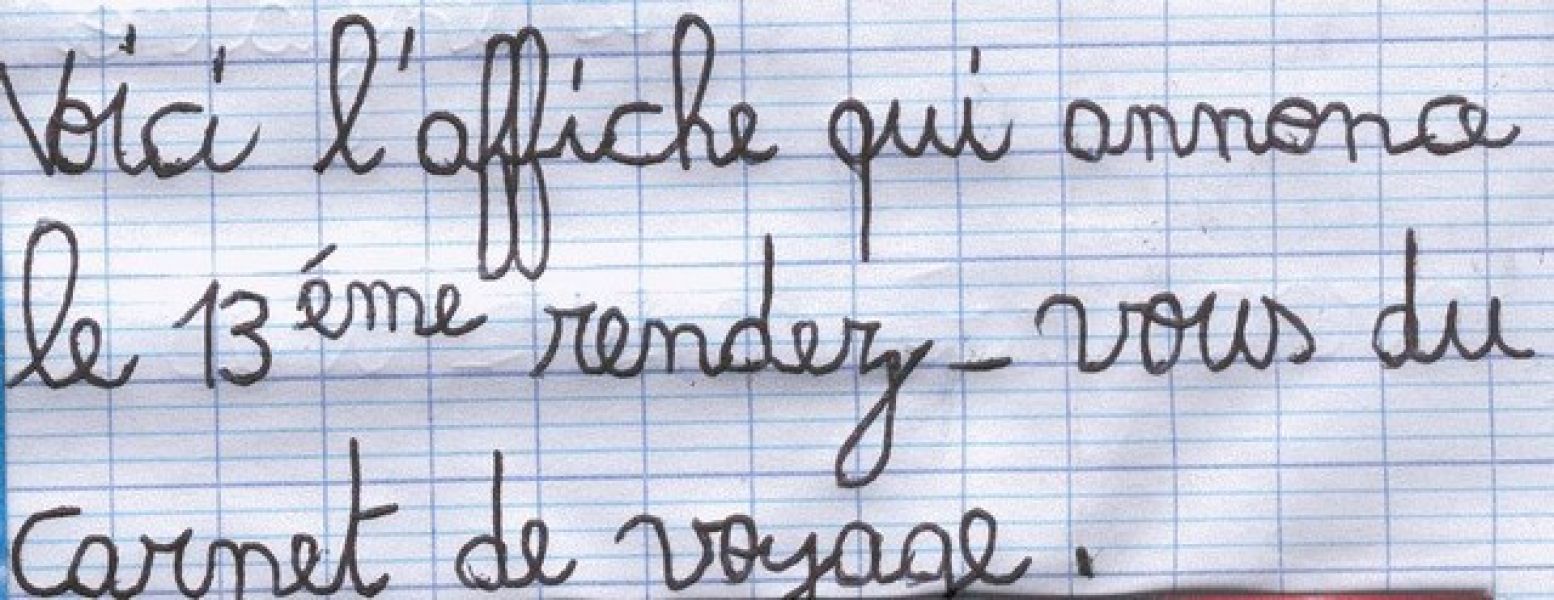 Voici l'affiche qui annonce
le 13éme rendez-vous du
carnet de voyage.